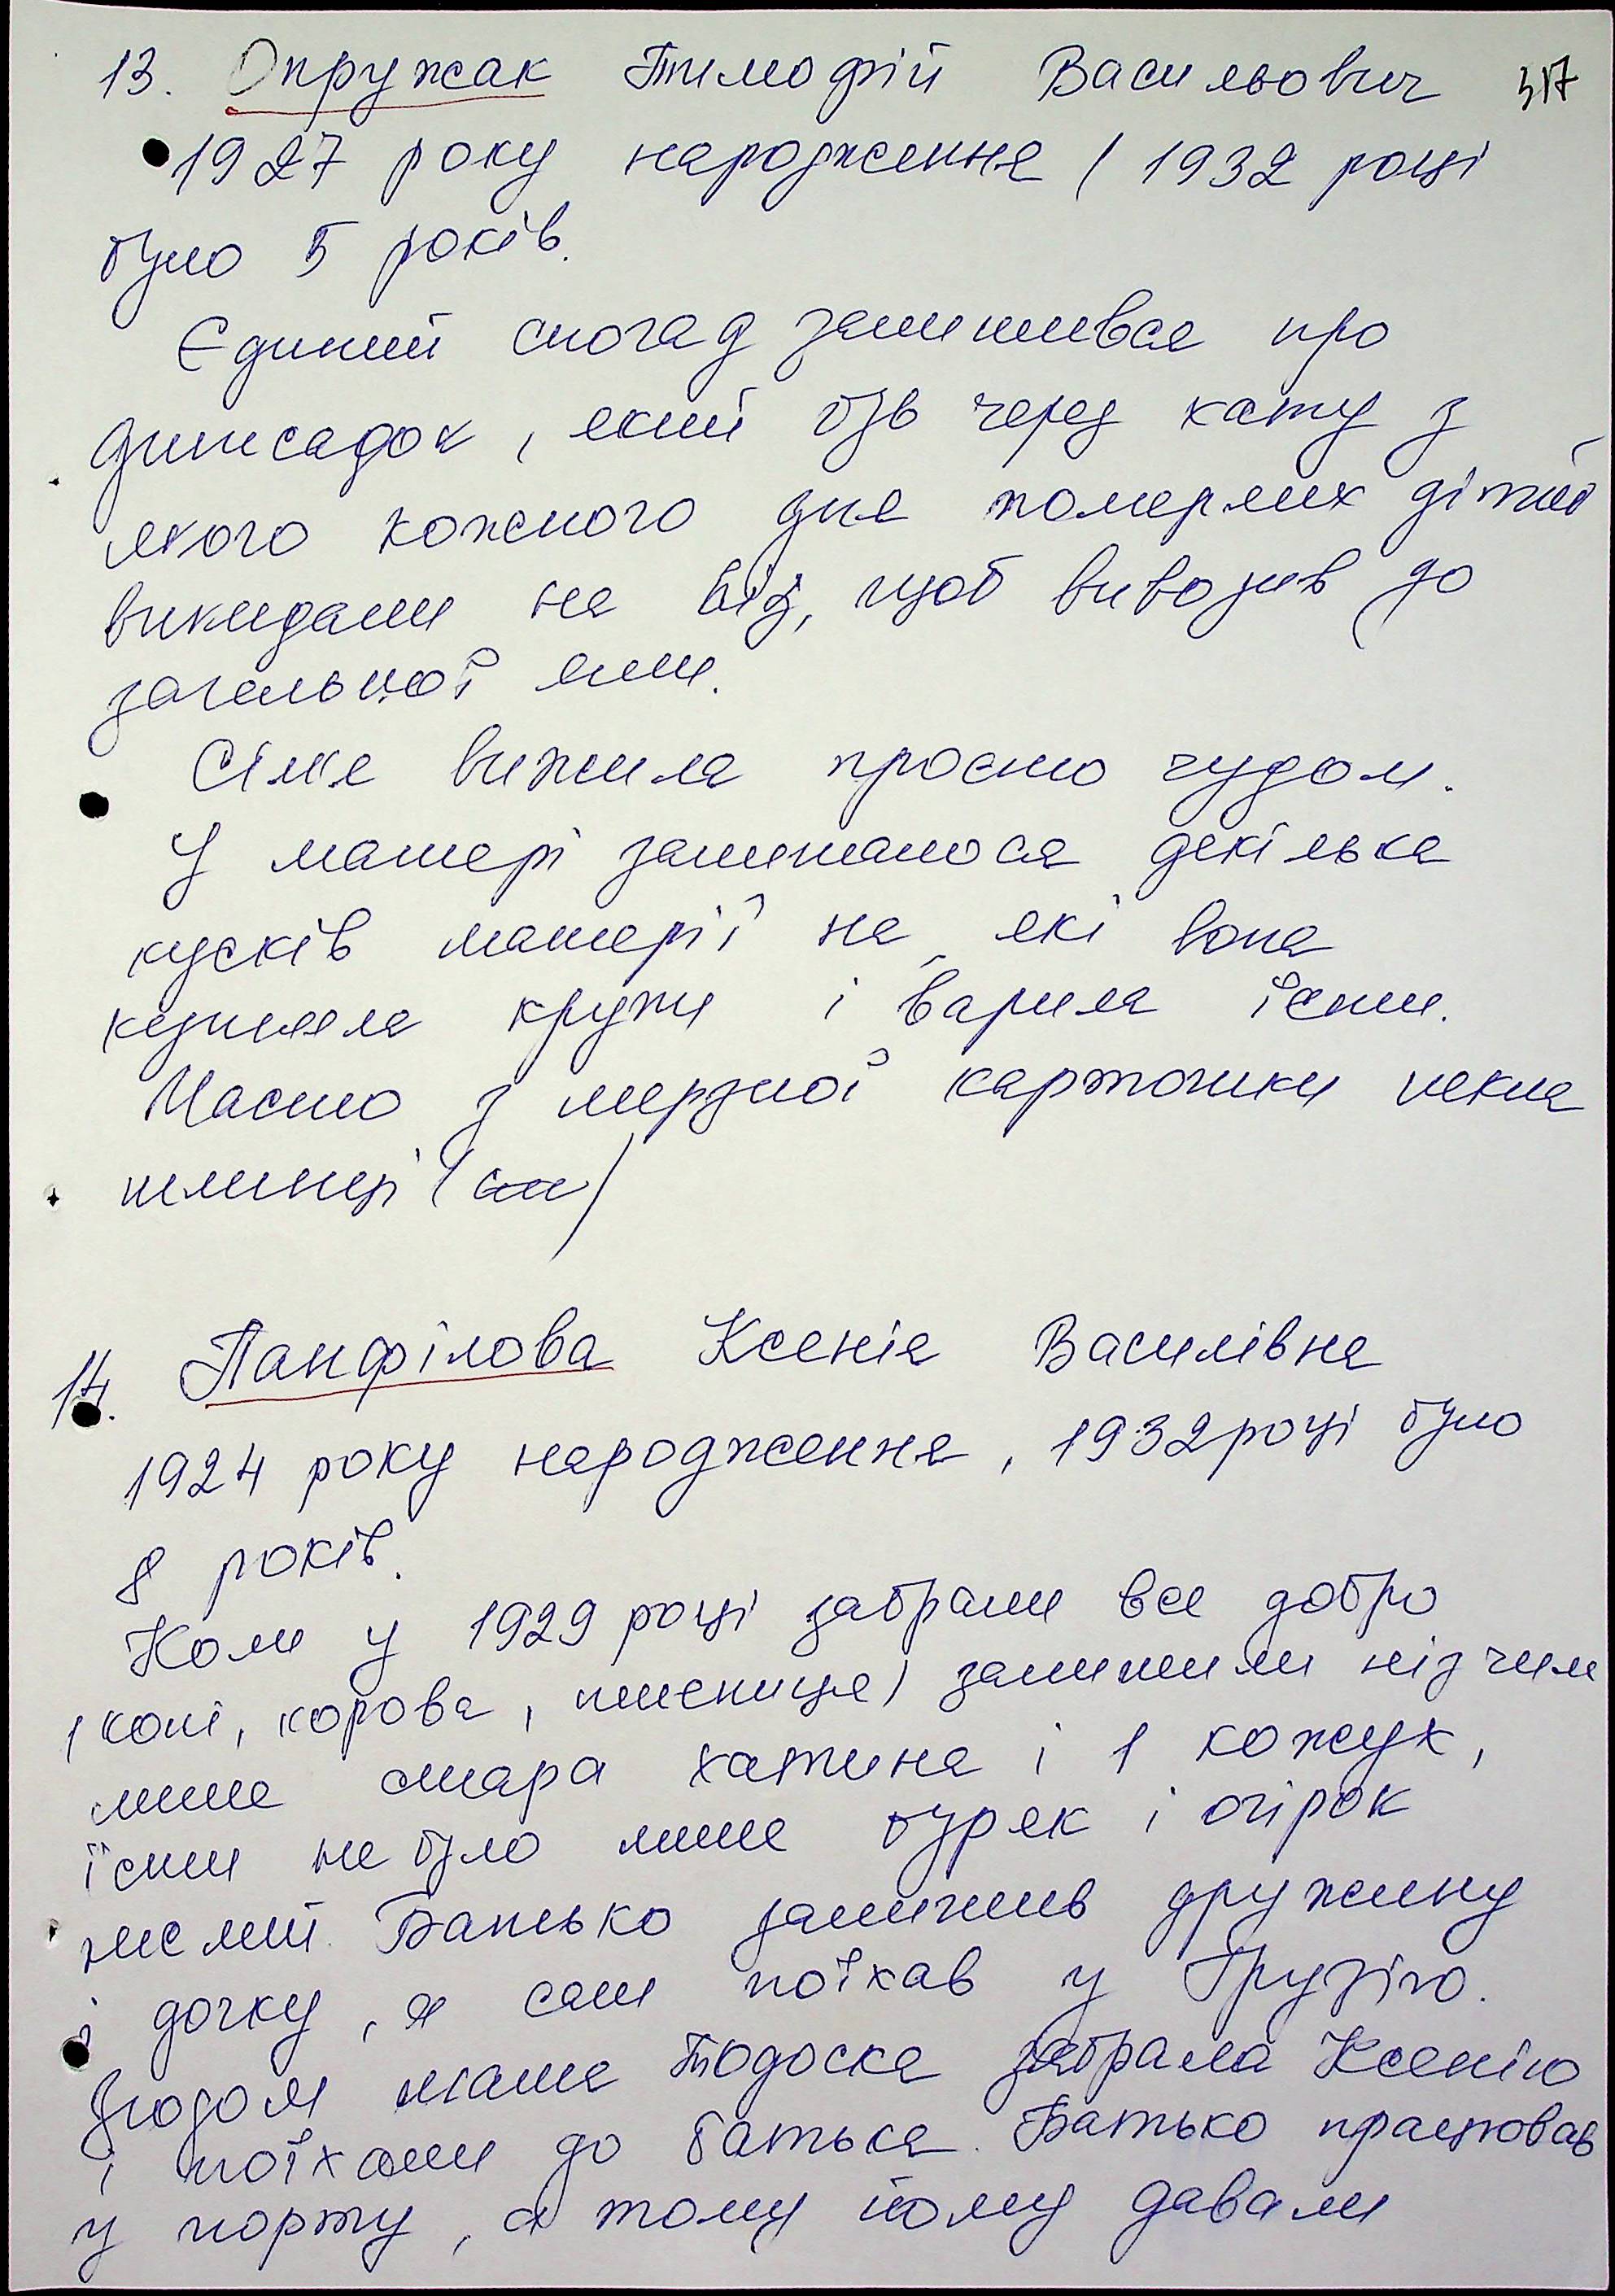 13. Опружак Тимофій Васильович 317
1927 року народження ( 1932 році
було 5 років.
Єдиний спогад залишився про
дитсадок, який був через хату з
якого кожного дня померлих дітей
викидали на віз, щоб вивозив до
загальної ями.
Сім'я вижила просто чудом.
У матері залишалося декілька
кусків матерії на які вона
купляла крупи і варила їсти.
Часто з мерзлої картошки пекла
млинці
14. Панфілова Ксенія Василівна
1924 року народження, 1932 році було
8 років.
Коли у 1929 році забрали все добро
(коні, корова, пшениця) залишили ні з чим
лише стара хатина і 1 кожух,
їсти не було лише буряк і огірок
кислий. Батько залишив дружину
і дочку, а сам поїхав у Грузію.
Згодом мама Тодоска забрала Ксенію
і поїхали до батька. Батько працював
у порту, а тому йому давали